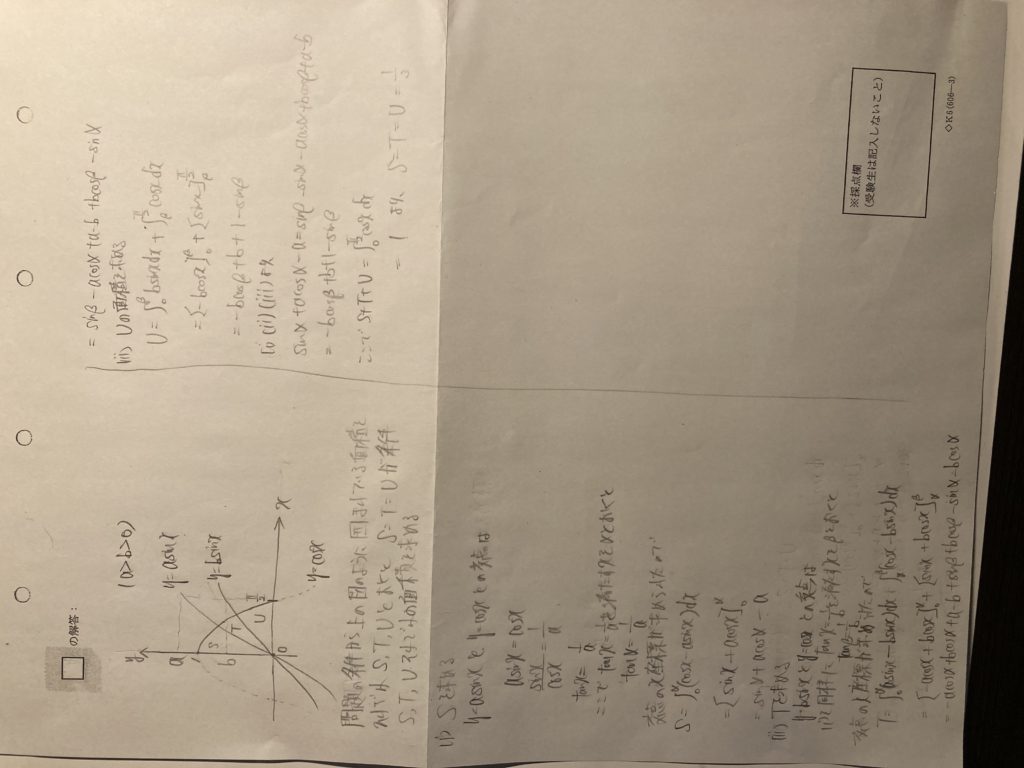 の解答:
(a>b>0)
y
a
b
S
T
U
O
π/2
x
y=asinx
y=bsinx
y=cosx
問題の条件から上の図のように囲まれている面積を
それぞれ S, T, U とおくと S=T=U が条件
S, T, U それぞれの面積を求める
(i) Sを求める
y=asinx と y=cosx との交点は
asinx = cosx
sinx/cosx = 1/a
tanx = 1/a
ここで tanx = 1/a を満たすxをαとおくと
tanα = 1/a
交点のx座標がαになったので
S = ∫₀^α (cosx - asinx)dx
= [sinx + acosx]₀^α
= sinα + acosα - a
(ii) Tを求める
y=bsinx と y=cosx との交点は
(i)と同様に tanx = 1/b を満たすxをβとおくと
tanβ = 1/b
交点のx座標がβになったので
T = ∫₀^α (asinx - bsinx)dx + ∫_α^β (cosx - bsinx)dx
= [-acosx + bcosx]₀^α + [sinx + bcosx]_α^β
= -acosα + bcosα + a - b + sinβ + bcosβ - sinα - bcosα
= sinβ - acosα + a - b + bcosβ - sinα
(iii) Uの面積を求める
U = ∫₀^β bsinx dx + ∫_β^{π/2} cosx dx
= [-bcosx]₀^β + [sinx]_β^{π/2}
= -bcosβ + b + 1 - sinβ
(i)(ii)(iii)より
sinα + acosα - a = sinβ - sinα - acosα + bcosβ + a - b
= -bcosβ + b + 1 - sinβ
ここで S+T+U = ∫₀^{π/2} cosx dx
= 1 より S=T=U = 1/3
※採点欄
(受験生は記入しないこと)
◇K6(606—3)